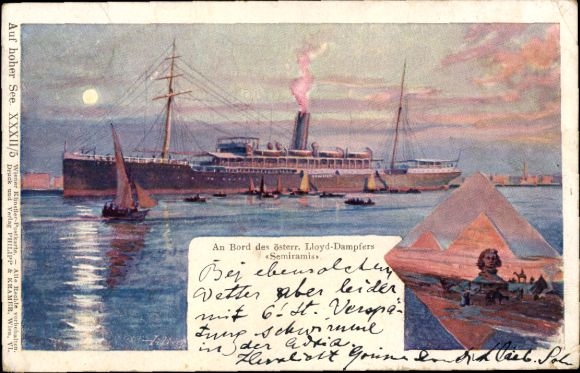 Auf hoher See. XXXII/5
Wiener Künstler-Postkarte. – Alle Rechte vorbehalten.
Druck und Verlag PHILIPP & KRAMER, Wien, VI.
An Bord des österr. Lloyd-Dampfers
«Semiramis».
Bei ebensolchem
Wetter aber leider
mit 6 St. Verspä-
tung schwimme
in der Adria.
Herzlichst